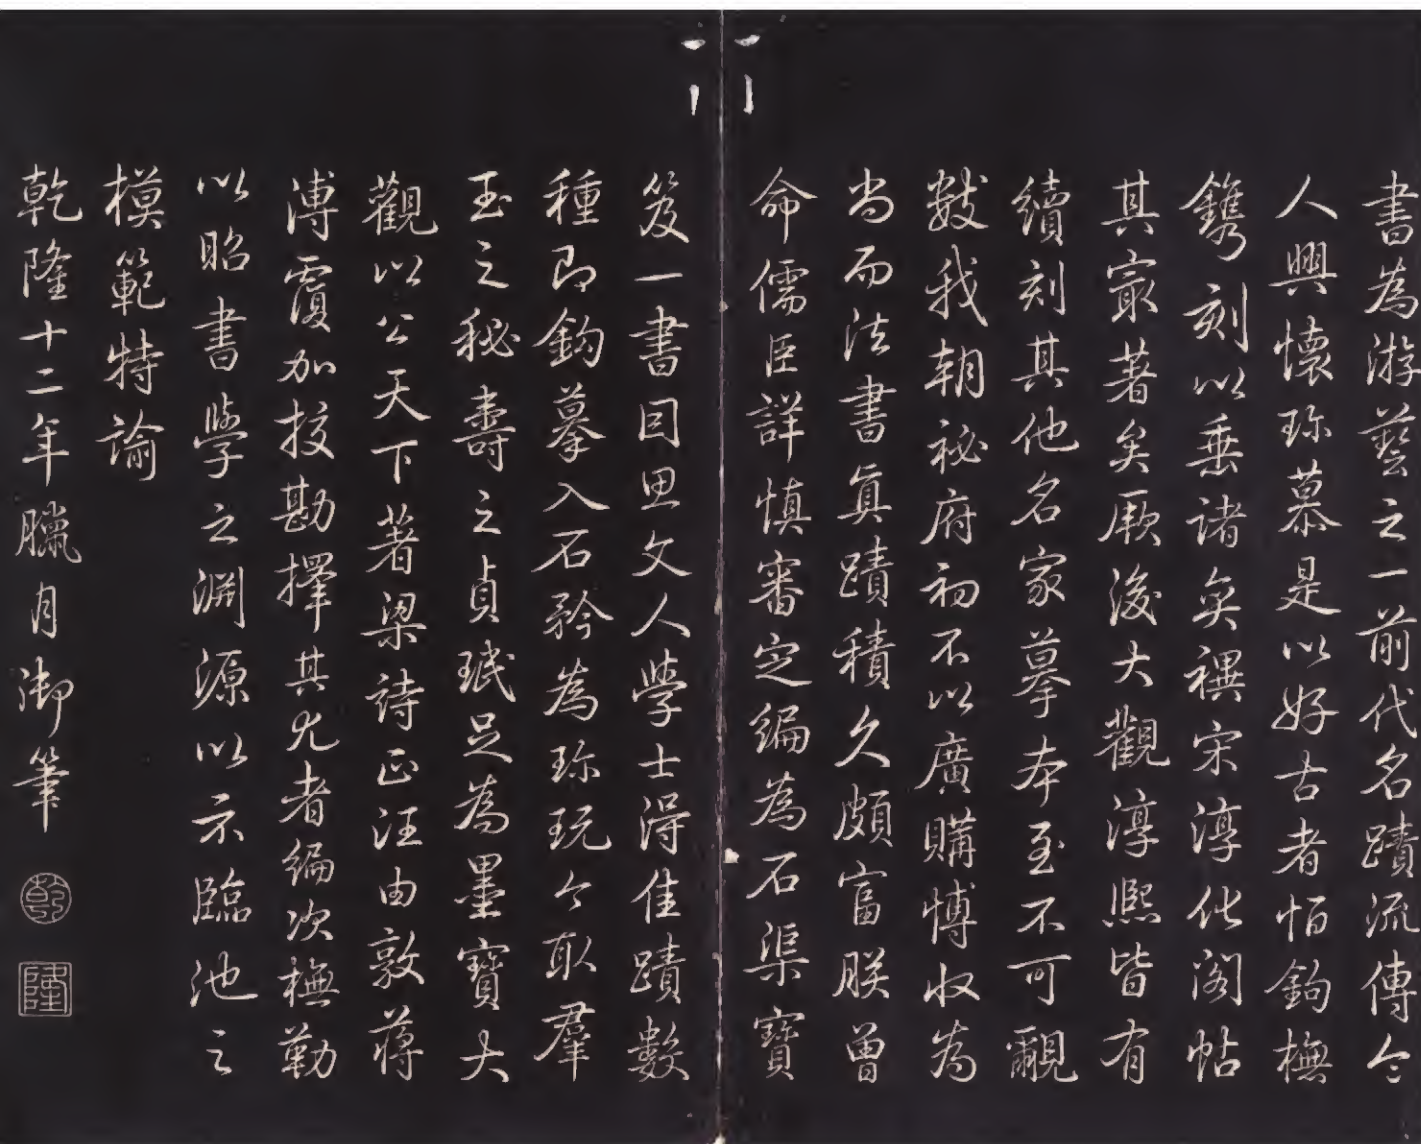 書為游藝之一前代名蹟流傳令
人興懷珎慕是以好古者怕鉤橅
鐫刻以垂諸奕禩宋淳化閣帖
其寂著矣厥後大觀淳熙皆有
續刻其他名家摹本至不可覼
數我朝秘府初不以廣購博收為
尚而法書真蹟積久頗富朕曾
命儒臣詳慎審定編為石渠寶
笈一書因思文人學士得佳蹟數
種即鉤摹入石矜為珎玩今取羣
玉之秘壽之貞珉足為墨寶大
觀以公天下著梁詩正汪由敦蔣
溥覆加挍勘擇其尤者編次橅勒
以昭書學之淵源以示臨池之
模範特諭
乾隆十二年臘月御筆
乾
隆